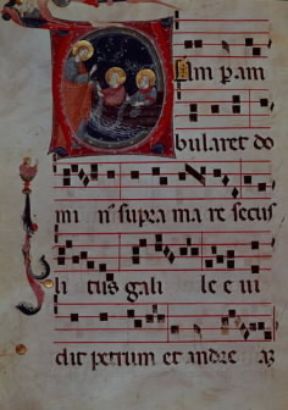 um p am
bularet do
mi n͂ supra ma re secus
li tus gali le e ui
dit petrum et andre aꝫ